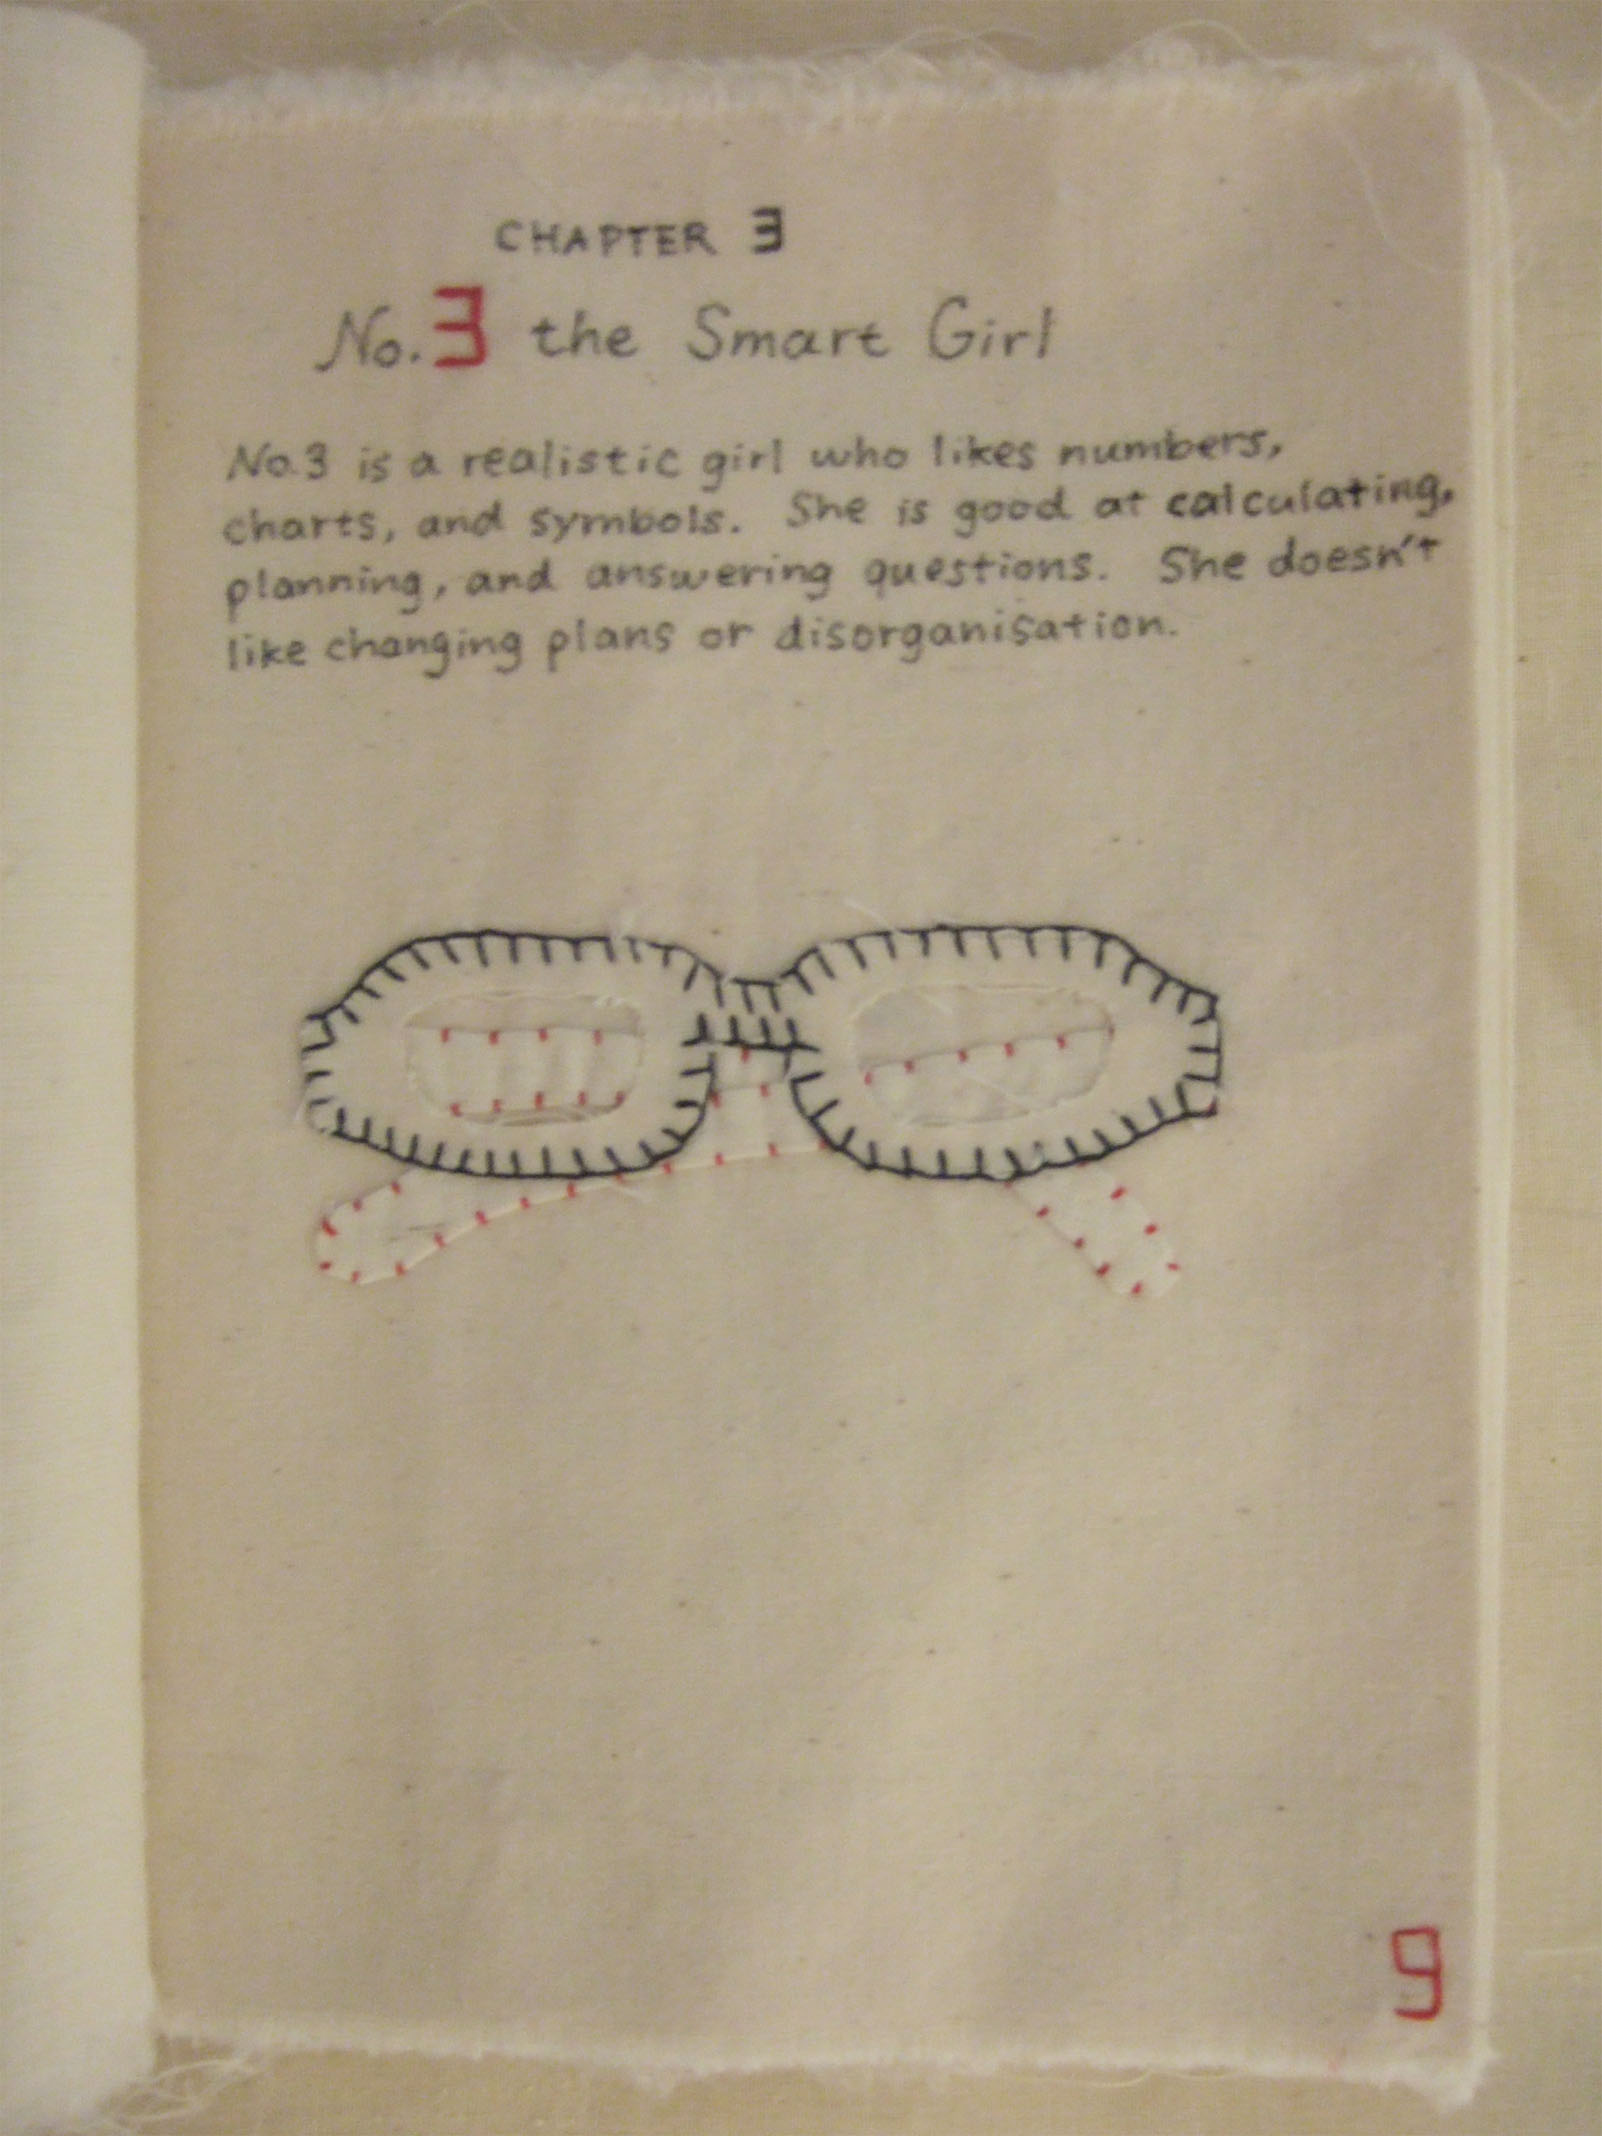 CHAPTER 3
No.3 the Smart Girl
No.3 is a realistic girl who likes numbers,
charts, and symbols. She is good at calculating,
planning, and answering questions. She doesn't
like changing plans or disorganisation.
9